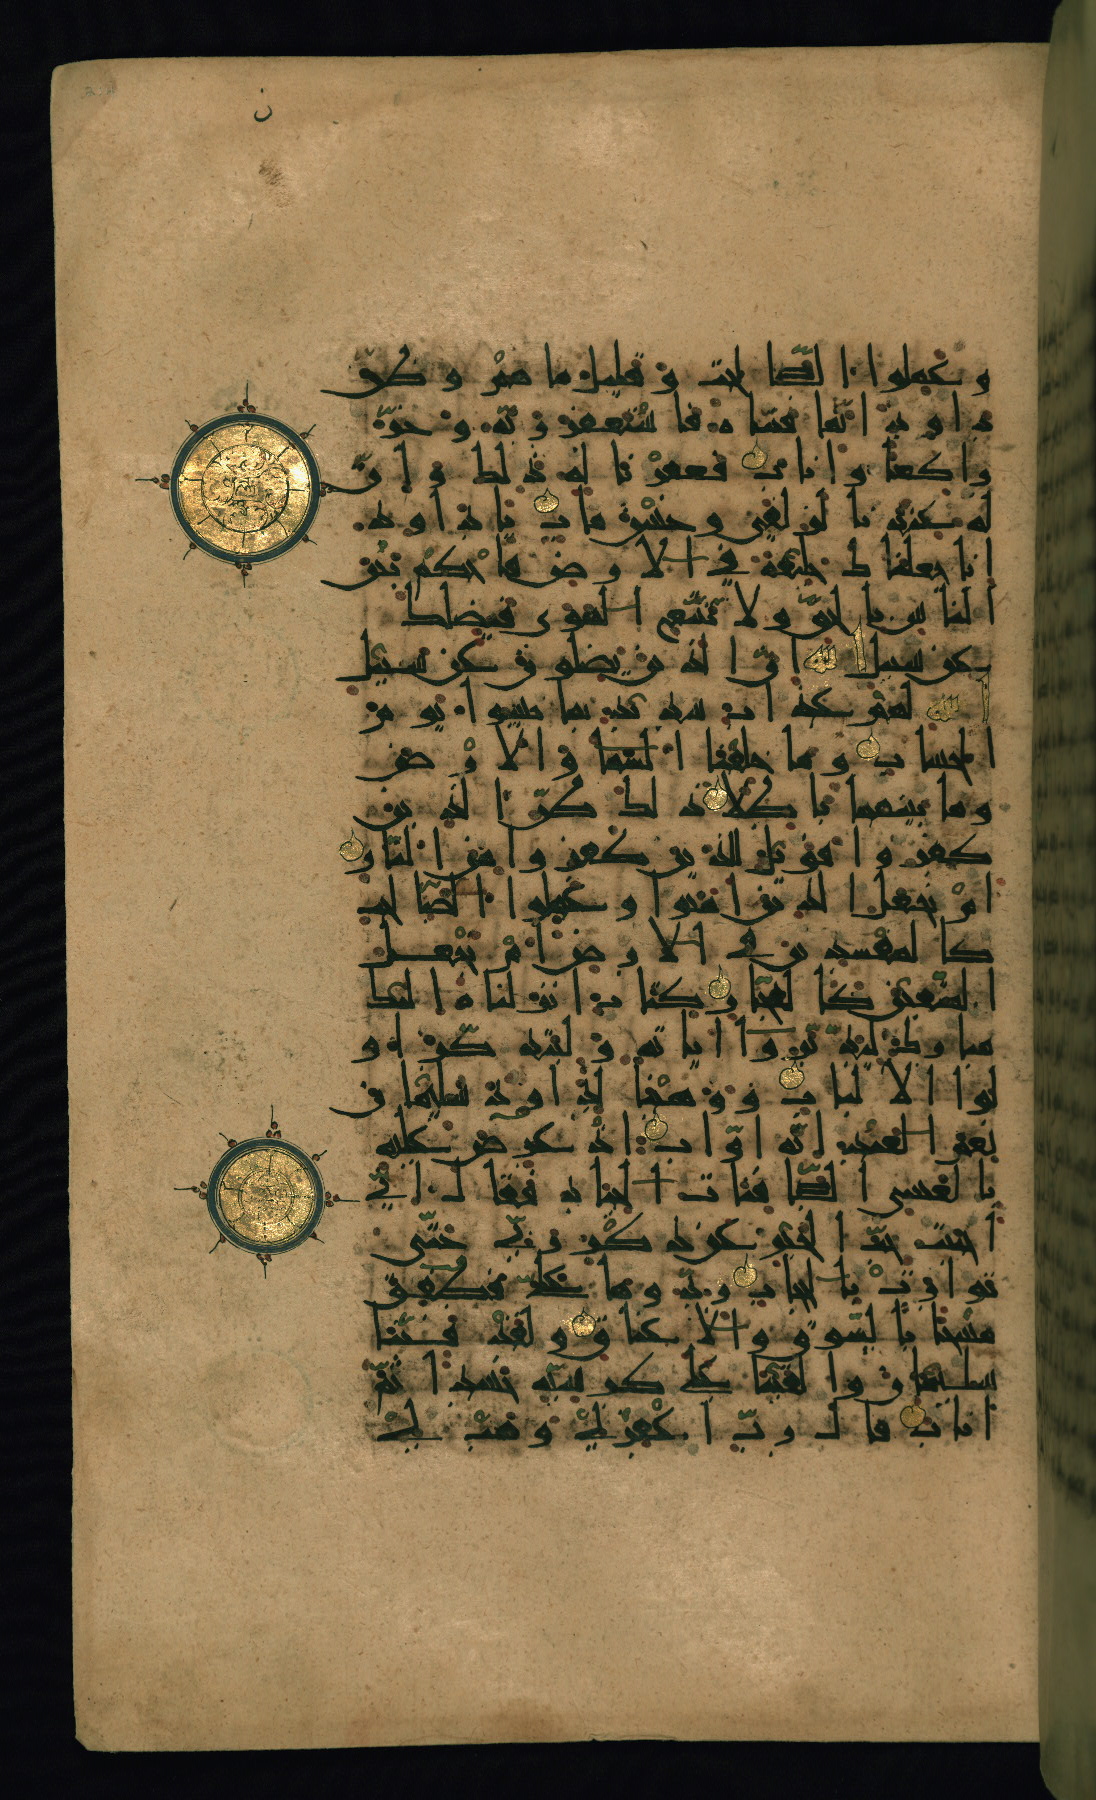 ن
وعملوا الصّالحت وقليل ما هم وظنّ
داود انّما فتنّاه فاستغفر ربّه وخرّ
راكعا واناب فغفرنا له ذلك وانّ
له عندنا لزلفى وحسن ماب يا داود
انا جعلناك خليفة في الارض فاحكم بين
الناس بالحقّ ولا تتّبع الهوى فيضلك
عن سبيل الله انّ الذين يضلون عن سبيل
الله لهم عذاب شديد بما نسوا يوم
الحساب وما خلقنا السّما والارض
وما بينهما باطلا ذلك ظنّ الذين
كفروا فويل للذين كفروا من النّار
ام نجعل الذين امنوا وعملوا الصّالحات
كالمفسدين في الارض ام نجعل
المتّقين كالفجّار كتاب انزلناه اليك
مبارك ليدّبّروا اياته وليتذكّر او
لوا الالباب ووهبنا لداود سليمان
نعم العبد انّه اوّاب اذ عرض عليه
بالعشي الصّافنات الجياد فقال انّي
احببت حبّ الخير عن ذكر ربّي حتّى
توارت بالحجاب ردّوها عليّ فطفق
مسحا بالسّوق والاعناق ولقد فتنّا
سليمان والقينا على كرسيّه جسدا ثمّ
اناب قال ربّ اغفر لي وهب لي